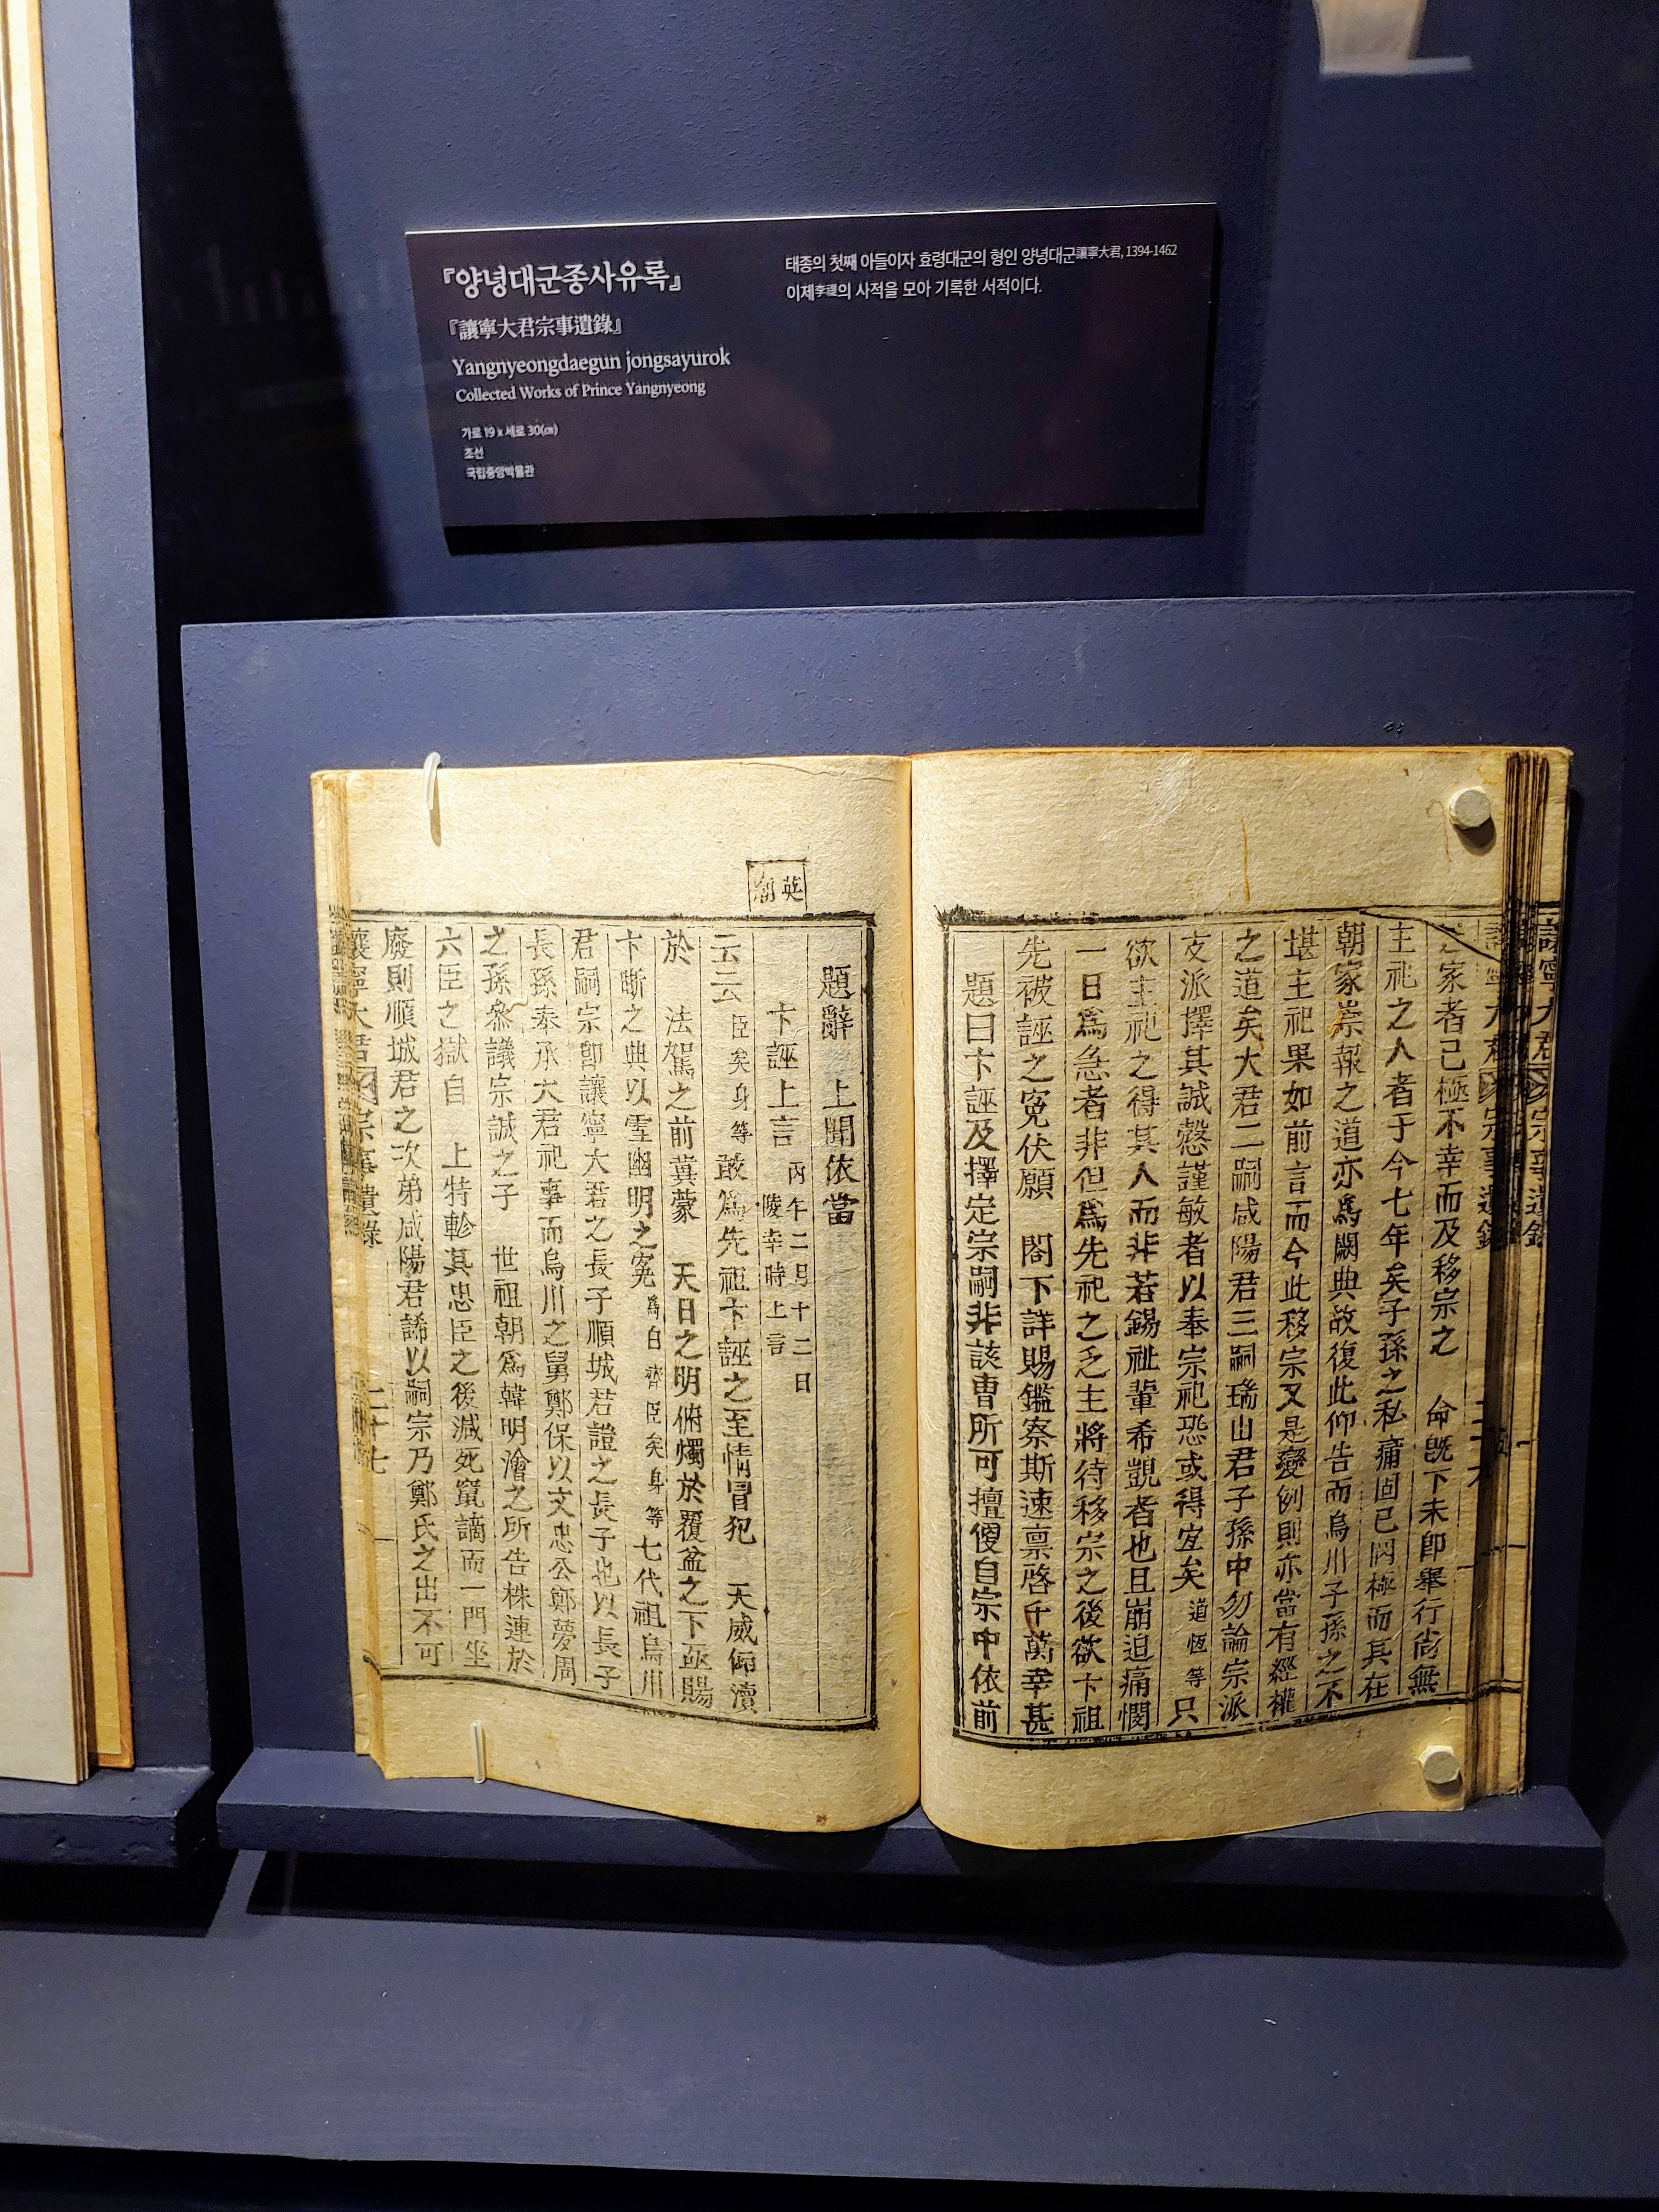 『양녕대군종사유록』
『讓寧大君宗事遺錄』
Yangnyeongdaegun jongsayurok
Collected Works of Prince Yangnyeong
가로 19 x 세로 30(㎝)
조선
국립중앙박물관
태종의 첫째 아들이자 효령대군의 형인 양녕대군讓寧大君, 1394-1462
이제李禔의 사적을 모아 기록한 서적이다.
家者已極不幸而及移宗之 命旣下未卽擧行尙無
主祀之人者于今七年矣子孫之私痛固已罔極而其在
朝家崇報之道亦爲闕典故復此仰告而烏川子孫之不
堪主祀果如前言而今此移宗又是變例則亦當有經權
之道矣大君二嗣咸陽君三嗣瑞山君子孫中勿論宗派
支派擇其誠慤謹敏者以奉宗祀恐或得宜矣 道恆 等 只
欲主祀之得其人而非若錫祉輩希覬者也且崩迫痛憫
一日爲急者非但爲先祀之乏主將待移宗之後欲卞祖
先被誣之寃伏願 閤下詳賜鑑察斯速禀啓千萬幸甚
題曰卞誣及擇定宗嗣非該曹所可擅便自宗中依前
題辭 上聞依當
英廟
卞誣上言 丙午二月十二日
陵幸時上言
云云 臣矣身等 敢爲先祖卞誣之至情冒犯 天威仰瀆
於 法駕之前冀蒙 天日之明俯燭於覆盆之下亟賜
卞晰之典以雪幽明之寃 爲白齊臣矣身等 七代祖烏川
君嗣宗卽讓寧大君之長子順城君譿之長子也以長子
長孫奉承大君祀事而烏川之舅鄭保以文忠公鄭夢周
之孫參議宗誠之子 世祖朝爲韓明澮之所告株連於
六臣之獄自 上特軫其忠臣之後減死竄謫而一門坐
廢則順城君之次弟咸陽君䛥以嗣宗乃鄭氏之出不可
讓寧大君 宗事遺錄
二十七